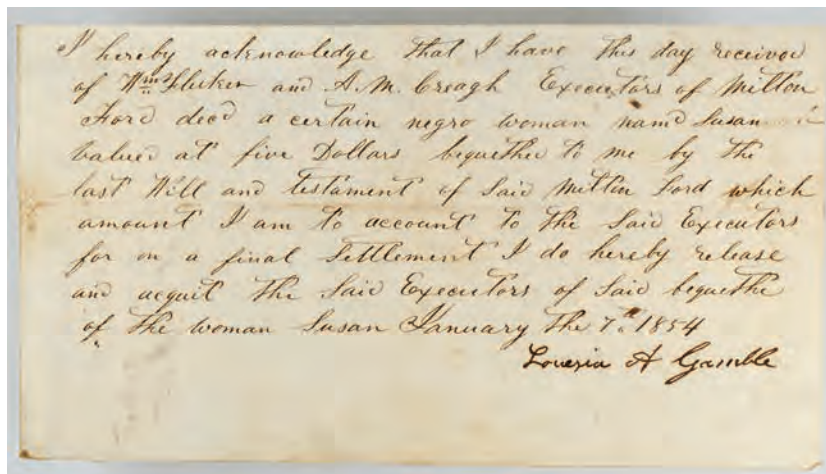 I hereby acknowledge that I have this day received
of Wm and A.M. Creagh Executors of Milton
Ford decd a certain negro woman namd Susan
valued at five Dollars bequethed to me by the
last Will and testament of Said Milton Ford which
amount I am to account to the Said Executors
for on a final Settlement I do hereby release
and acquit the Said Executors of Said bequethe
of the woman Susan January the 7th 1854
A Gamble